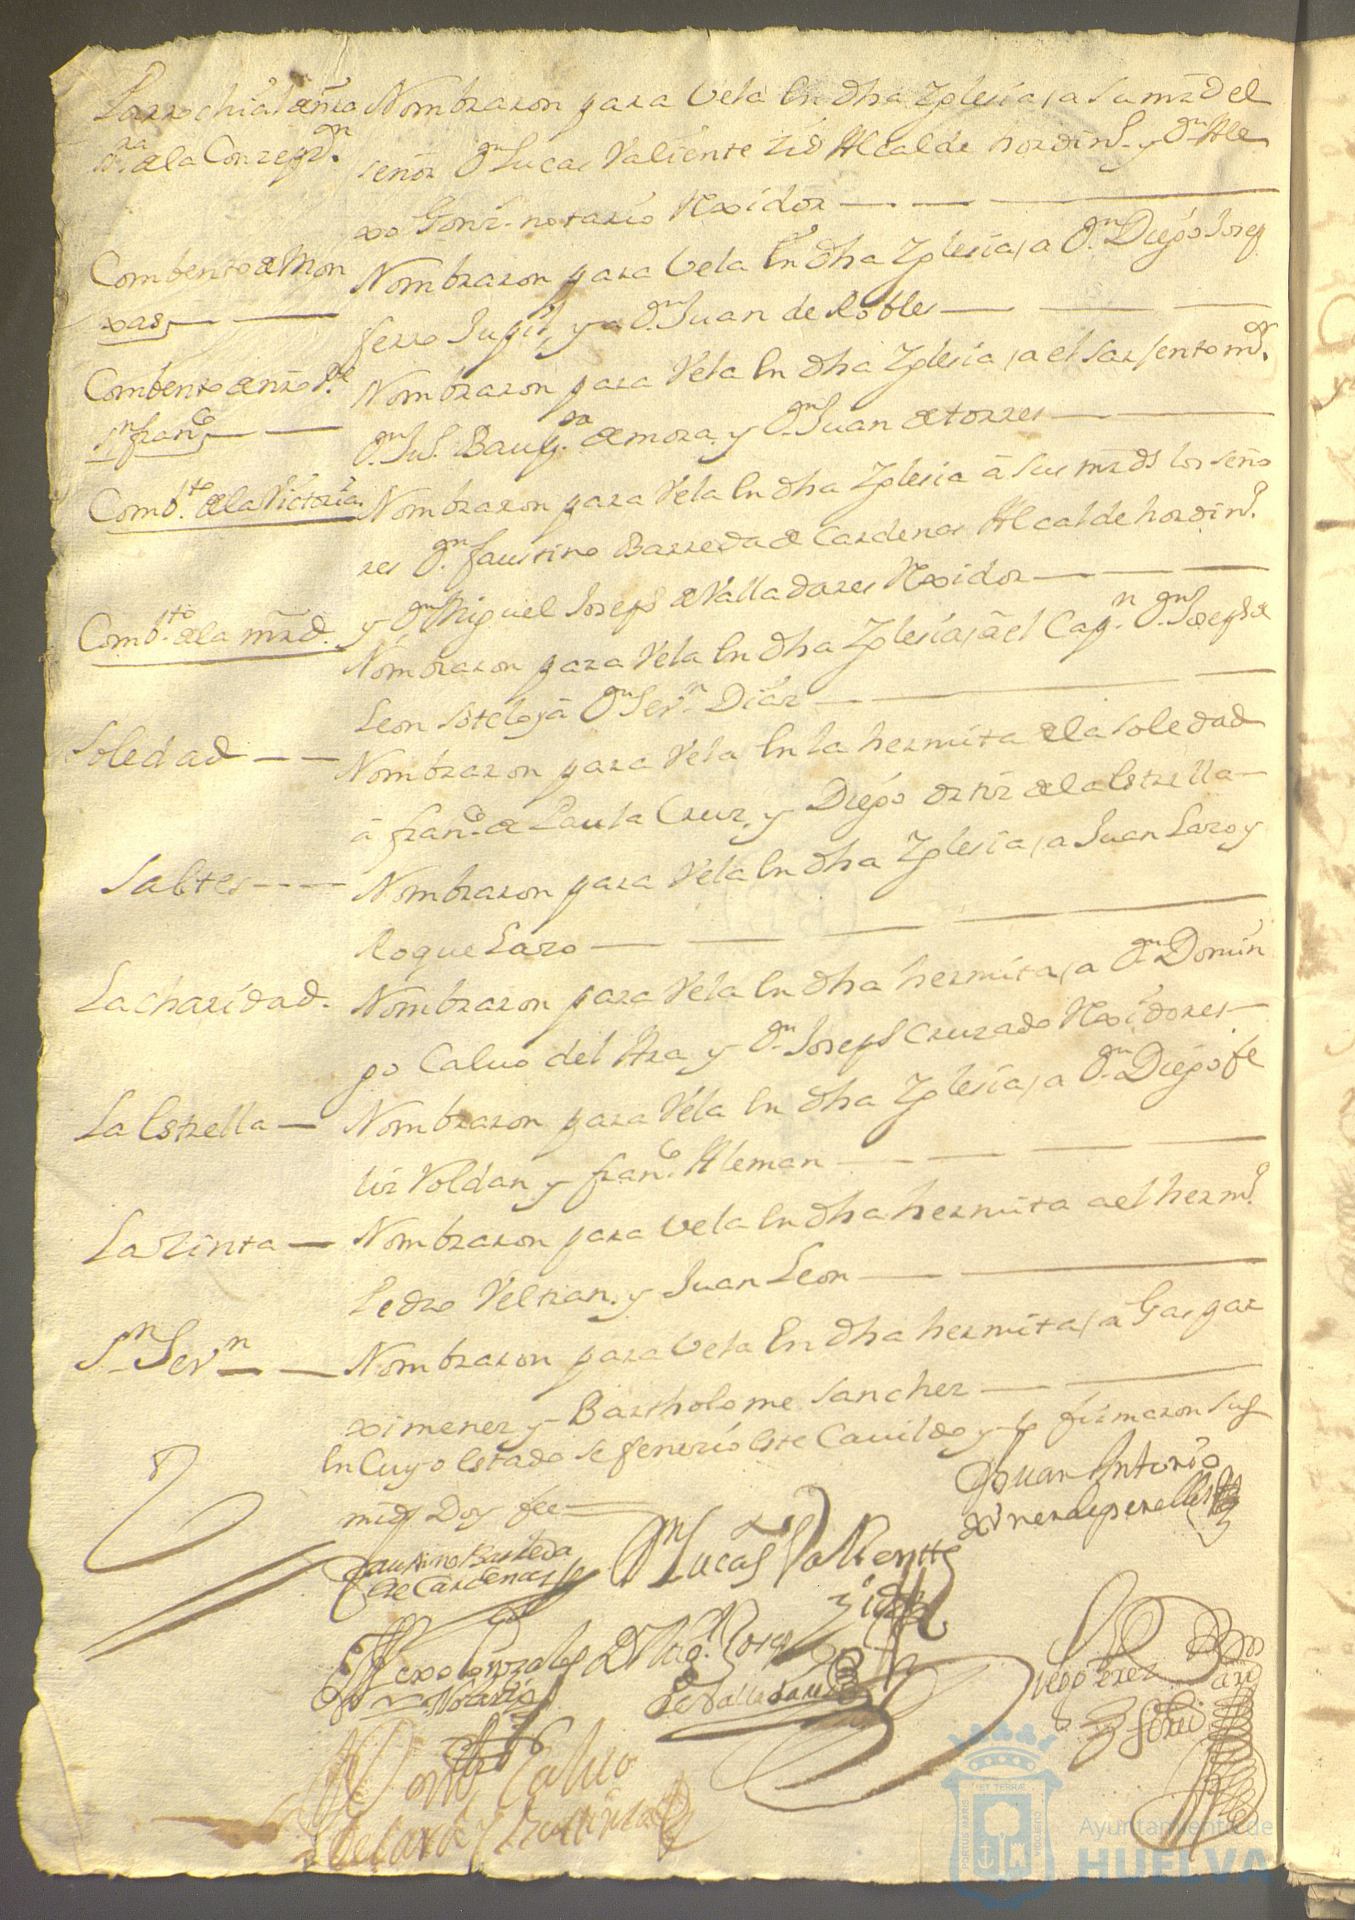 Parrochial de nra Nombraron para Vela En dha Yglesia, a su mrd el
Sra. de la Conzepon. señor Dn Lucas Valiente Zid Alcalde hordino. y Dn Ale
xo Gonz. notario Rexidor
Combento de Mon Nombraron para Vela En dha Yglesia, a Dn Diego Josep
xas, ferro y a Dn Juan de Robles
Combento de nro Pe Nombraron para Vela En dha Yglesia, a el sarsento mor.
Sn franco Dn Baupta de mora, y Dn Juan de torres
Combto. de la Victoria. Nombraron para Vela En dha Yglesia â sus mrds los seño
res Dn faustino Barreda de Cardenas Alcalde hordino.
y Dn Miguel Joseph de Valladares Rexidor
Combto. de la mrd. Nombraron para Vela En dha Yglesia, â el Capn. Dn Joseph de
Leon Sotelo, y â Dn Sevn Diaz
Soledad Nombraron para Vela En la hermita de la soledad
â franco de Paula Cruz, y Diego ortiz de la Estrella
Saltes Nombraron para Vela En dha Yglesia, a Juan Lazo y
Roque Lazo
La charidad. Nombraron para Vela En dha hermita, a Dn Domin
go Calvo del Ara, y Dn Joseph Cruzado Rexidores
La Estrella Nombraron para Vela En dha Yglesia, a Dn Diego fe
liz Roldan y franco Aleman
La Zinta Nombraron para vela En dha hermita a el hermo.
Pedro Veltran, y Juan Leon
Sn Sevn Nombraron para vela En dha hermita, â Gaspar
ximenez y Bartholome Sanchez
En Cuyo Estado se fenezio Este Cavildo y lo firmaron sus
mrds Doy fee
Jouan Antonio
Faustino Barreda
de Cardenas
Dn Lucas Valientte
Zid
Alexo Gonzales
Notario
Dn Migl Joseph
de Valladares
Diego Perez
Calvo
AYUNTAMIENTO DE
HUELVA